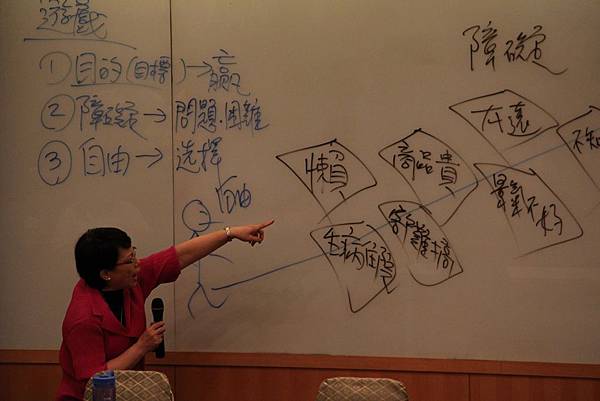 遊戲
①目的(目標)→贏
②障礙→問題.困難
③自由→選擇
自由
障礙
懶
商品貴
太遠
不知
生病
客戶難搞
景氣不好